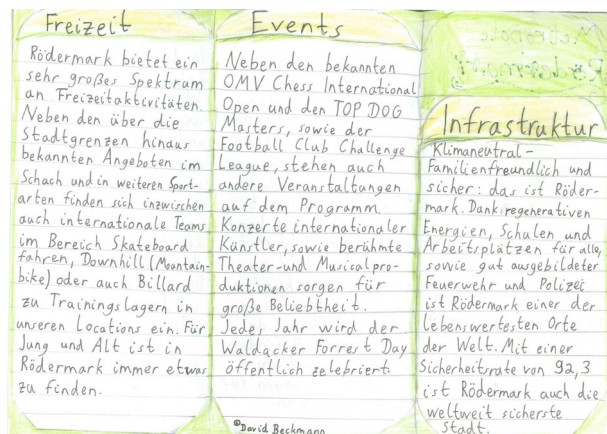 Freizeit
Rödermark bietet ein
sehr großes Spektrum
an Freizeitaktivitäten.
Neben den über die
Stadtgrenzen hinaus
bekannten Angeboten im
Schach und in weiteren Sport-
arten finden sich inzwischen
auch internationale Teams
im Bereich Skateboard
fahren, Downhill (Mountain-
bike) oder auch Billard
zu Trainingslagern in
unseren Locations ein. Für
Jung und Alt ist in
Rödermark immer etwas
zu finden.
Events
Neben den bekannten
OMV Chess International
Open und den TOP DOG
Masters, sowie der
Football Club Challenge
League, stehen auch
andere Veranstaltungen
auf dem Programm.
Konzerte internationaler
Künstler, sowie berühmte
Theater- und Musicalpro-
duktionen sorgen für
große Beliebtheit.
Jedes Jahr wird der
Waldacker Forrest Day
öffentlich zelebriert.
©David Beckmann
Infrastruktur
Klimaneutral-
Familienfreundlich und
sicher: das ist Röder-
mark. Dank regenerativen
Energien, Schulen und
Arbeitsplätzen für alle,
sowie gut ausgebildeter
Feuerwehr und Polizei
ist Rödermark einer der
lebenswertesten Orte
der Welt. Mit einer
Sicherheitsrate von 92,3
ist Rödermark auch die
weltweit sicherste
Stadt.